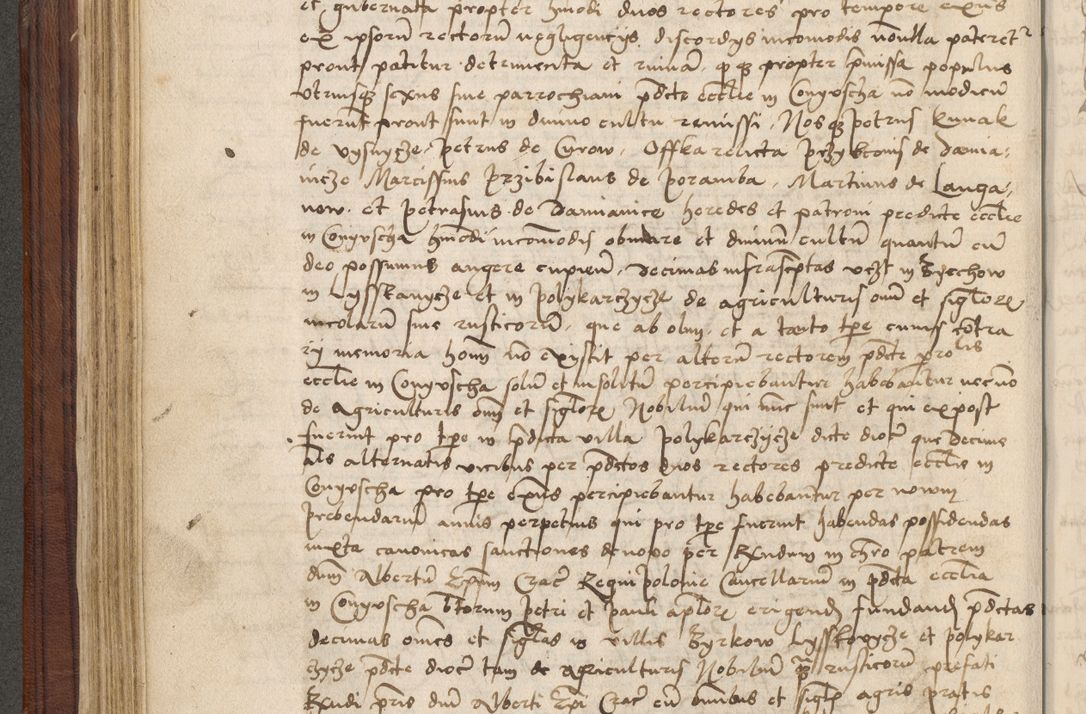 et gubernata propter hmodi duos rectores pro tempore exns
ex ipsorum rectorum negligencijs discordijs incomodis nonulla pateretr
prout patitur detrimenta et ruinam, qz propter pmissa populus
vtriusqz sexus siue parrochiani pdcte ecclie in Conyvscha no modicum
fuerunt prout sunt in diuino cultu remissi, Nosqz petrus kunak
de vysnycze, petrus de Cyrow, Offka relicta przybkonis de damia,
nicze Marcissius przibislaus de poramba, Martinus de Langa,
now, et petrasius de Damianice heredes et patroni predicte ecclie
in Conyvscha hmodi incomodis obuiare et diuinum cultum quantum cum
deo possumus augere cupientes, decimas infrascptas vczt in Zyrchow
in Lysskanycze et in polykarczycze de agriculturis omm et sigloru
incolarum siue rusticorum, que ab olim et a tanto tpe cuius contra
rij memoria homm no existit per alterum rectorem pdcte prolis
ecclie in Conyvscha solum et insolitum percipiebantur habebantur necno
de agriculturis omm et sigloru Nobilium qui nunc sunt et qui expost
fuerint pro tpe in pdicta villa polykarczycze dicte dioc que decime
als alternatis vicibus per pdctos duos rectores predicte ecclie in
Conyvscha pro tpe exns percipiebantur habebantur per nouum
prebendarium annis perpetuis qui pro tpe fuerint habendas possidendas
iuxta canonicas sanctiones denouo per Rxndum in chro patrem
dnm Albertum Epum Crac Regni polonie Cancellarium in pdcta ecclia
in Conyvscha btorum petri et pauli aplorum erigendi fundandi pdctas
decimas omes et siglas in villis Zyrkow Lysskowycze et polykar
czycze pdcte dioc tam de agriculturis Nobilium qz rusticorum prefati
Rxndi pris dni Alberti Epi Crac cum omibus et siglis agris pratis